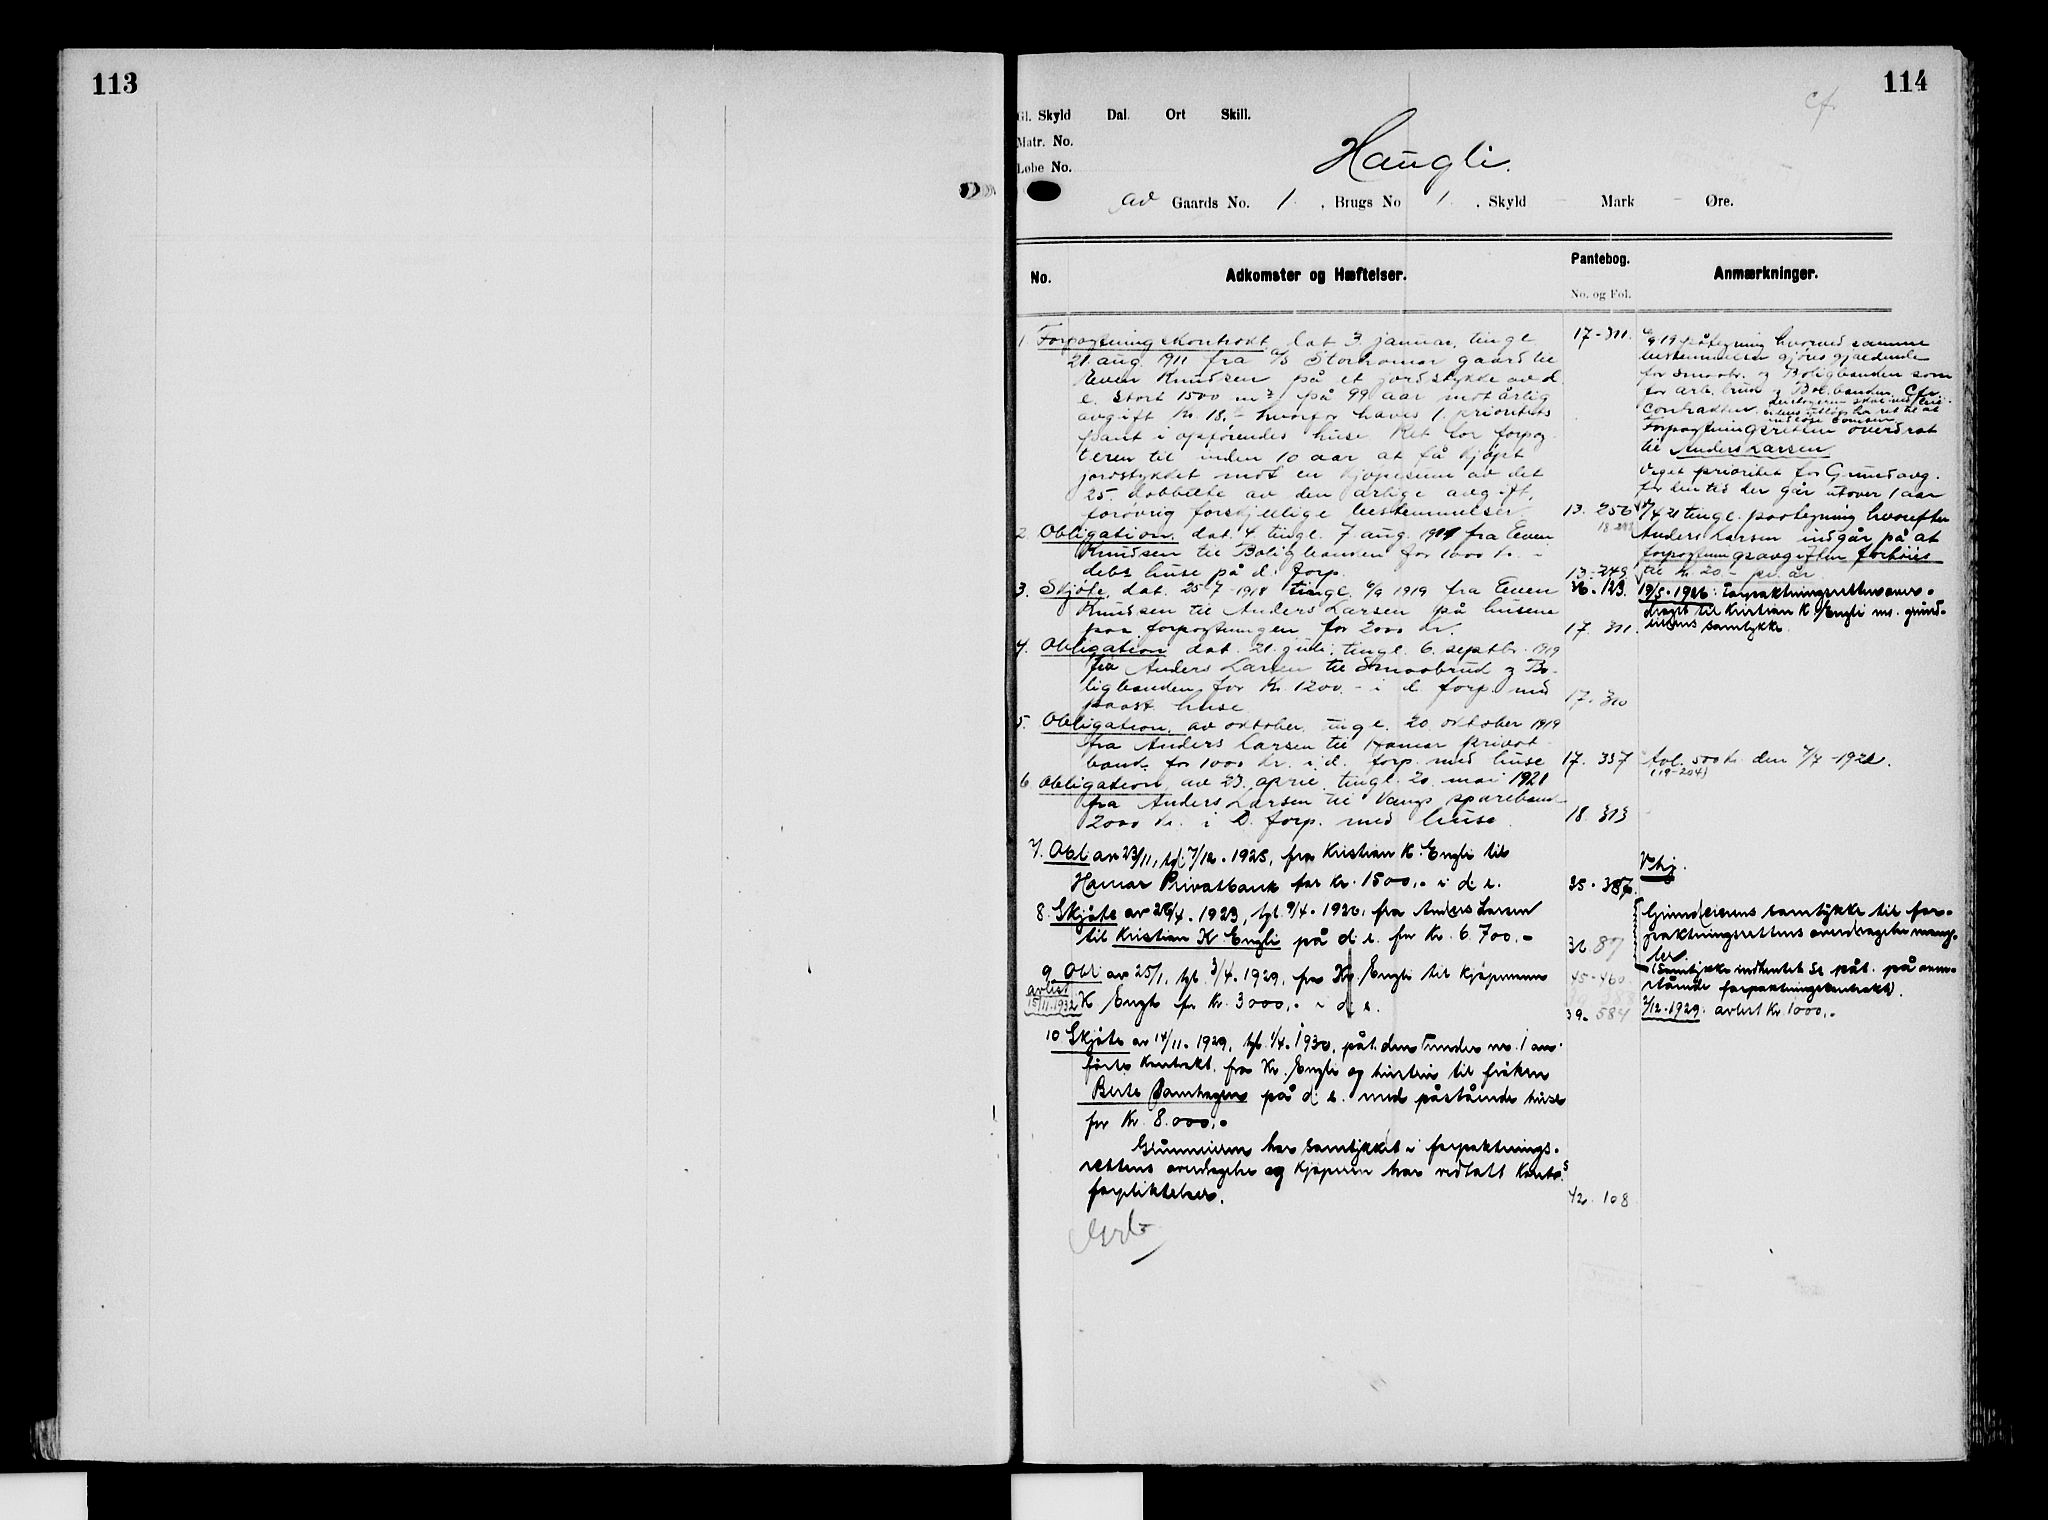 113
114
cfr
Gl. Skyld Dal. Ort Skill.
Matr. No.
Løbe No.
Haugli.
av Gaards No. 1. , Brugs No 1. , Skyld — Mark — Øre.
No.
Adkomster og Hæftelser.
Pantebog.
No. og Fol.
Anmærkninger.
1 Forpagtningskontrakt, dat 3 januar, tingl
21 aug. 1911 fra a/s Storhamar gaard til
Even Knudsen på et jordstykke av d.
e. stort 1500 m2 på 99 aar mot årlig
avgift kr 18,- hvorfor haves 1. prioritets
pant i opførendes huse. Ret for forpag-
teren til inden 10 aar at få kjøpt
jordstykket mot en kjøpesum av det
25. dobbelte av den årlige avgift,
forøvrig forskjellige bestemmelser.
17-311.
13. 256
18-293
2 Obligation, dat. 4. tingl. 7. aug. 1911 fra Even
Knudsen til Boligbanken for 1000 kr. i
debs huse på d. forp.
13-249
3. Skjøte, dat. 25/7-1918 tingl. 6/9 1919 fra Even
Knudsen til Anders Larsen på husene
paa forpagtningen for 2000 kr.
26-123.
17. 311.
4. Obligation dat. 21. juli, tingl. 6. septbr. 1919
fra Anders Larsen til Smaabruk og Bo-
ligbanken for Kr. 1200.- i d. forp. med
paast. huse
17-310
5. Obligation, av oktober, tingl. 20. oktober 1919
fra Anders Larsen til Hamar privat
bank for 1000 kr. i d. forp. med huse
17. 337
6 Obligation, av 23. april, tingl. 20. mai 1921
fra Anders Larsen til Vangs sparebank
2000 kr. i d. forp. med huse.
18. 313
7. Obl. av 23/11, tgl. 7/12. 1925, fra Kristian K. Engli til
Hamar Privatbank for kr. 1500,- i d. e.
25-387.
8. Skjøte av 26/4. 1923, tgl. 9/4. 1926, fra Anders Larsen
til Kristian K Engli på d. e. for Kr. 6.700.-
9. Obl. av 25/1, tgl. 3/4. 1929, fra Kr. Engli til kjøpmann
K Engli for Kr. 3000,- i d. e.
avlest
15/11.1932
45-460
39- 584
10 Skjøte av 14/11. 1929, tgl. 1/4. 1930, påt. den under nr. 1 an-
førte kontrakt, fra Kr. Engli og hustru til frøken
Berte på d. e. med påstående huse
for Kr. 8.000,-
Grunneieren har samtykket i forpaktnings-
rettens overdragelse og kjøperen har vedtatt kontr.s
forpliktelser.
42. 108
6/9 19 påtegning hvorved samme
bestemmelser gjøres gjældende
for smaabr. og Boligbanken som
for arb. bruk og Bol.banken. Cfr.
contrakten.
Forpagtningsretten overdrat
til Anders Larsen
Veget prioritet for Grundavg.
for den tid der går utover 1 aar
7/4 21 tingl. paategning hvorefter
Anders Larsen indgår på at
forpagtningsavgiften forhøies
til kr. 20,- pr. år.
19/5-1926: Forpaktningsretten over-
draget til Kristian K Engli m. grund-
eierens samtykke.
Avl. 500 kr. den 7/7-1922.
(19-204)
Grundeierens samtykke til for-
paktningsrettens overdragelse mang-
ler.
(Samtykke indhentet se påt. på oven-
stående forpaktningskontrakt).
3/12-1929: avlest Kr 1000,-